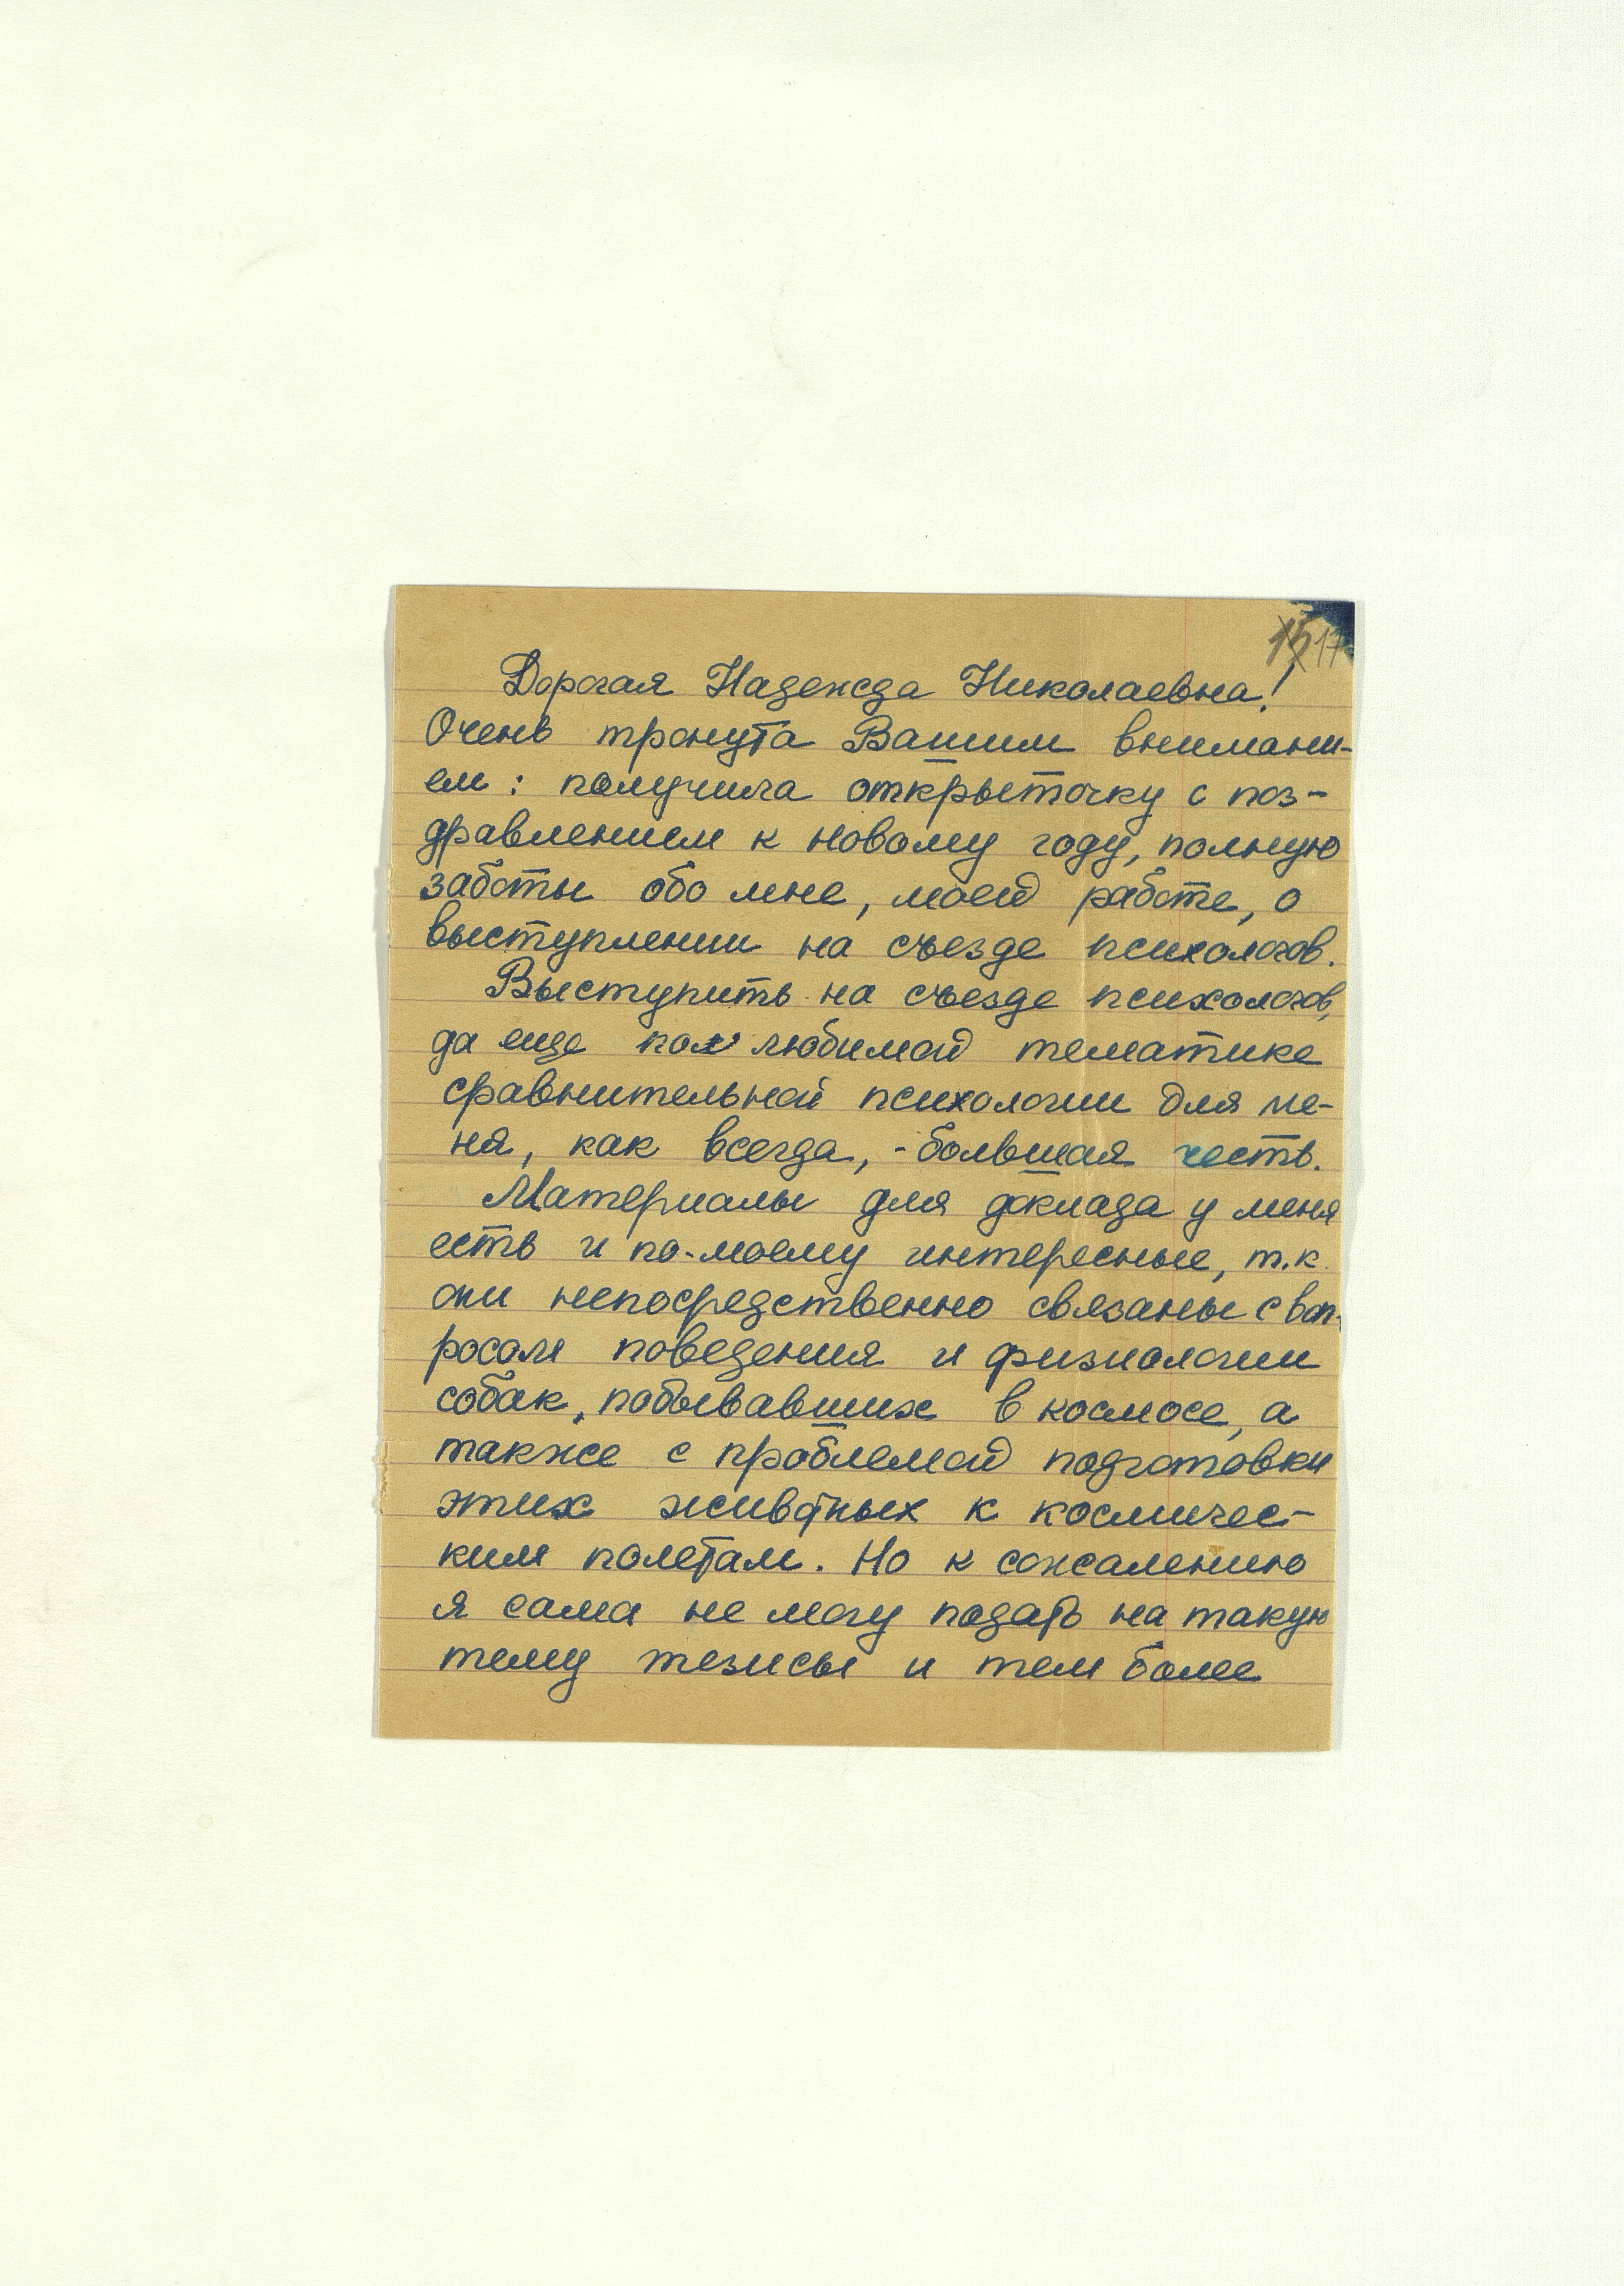 15 17
Дорогая Надежда Николаевна!
Очень тронута Вашим внимани-
ем: получила открыточку с поз-
дравлением к новому году, полную
заботы обо мне, моей работе, о
выступлении на съезде психологов.
Выступить на съезде психологов,
да еще по любимой тематике
сравнительной психологии для ме-
ня, как всегда, - большая честь.
Материалы для доклада у меня
есть и по-моему интересные, т.к.
они непосредственно связаны с воп-
росам поведения и физиологии
собак, побывавших в космосе, а
также с проблемой подготовки
этих животных к космичес-
ким полетам. Но к сожалению
я сама не могу подать на такую
тему тезисы и тем более